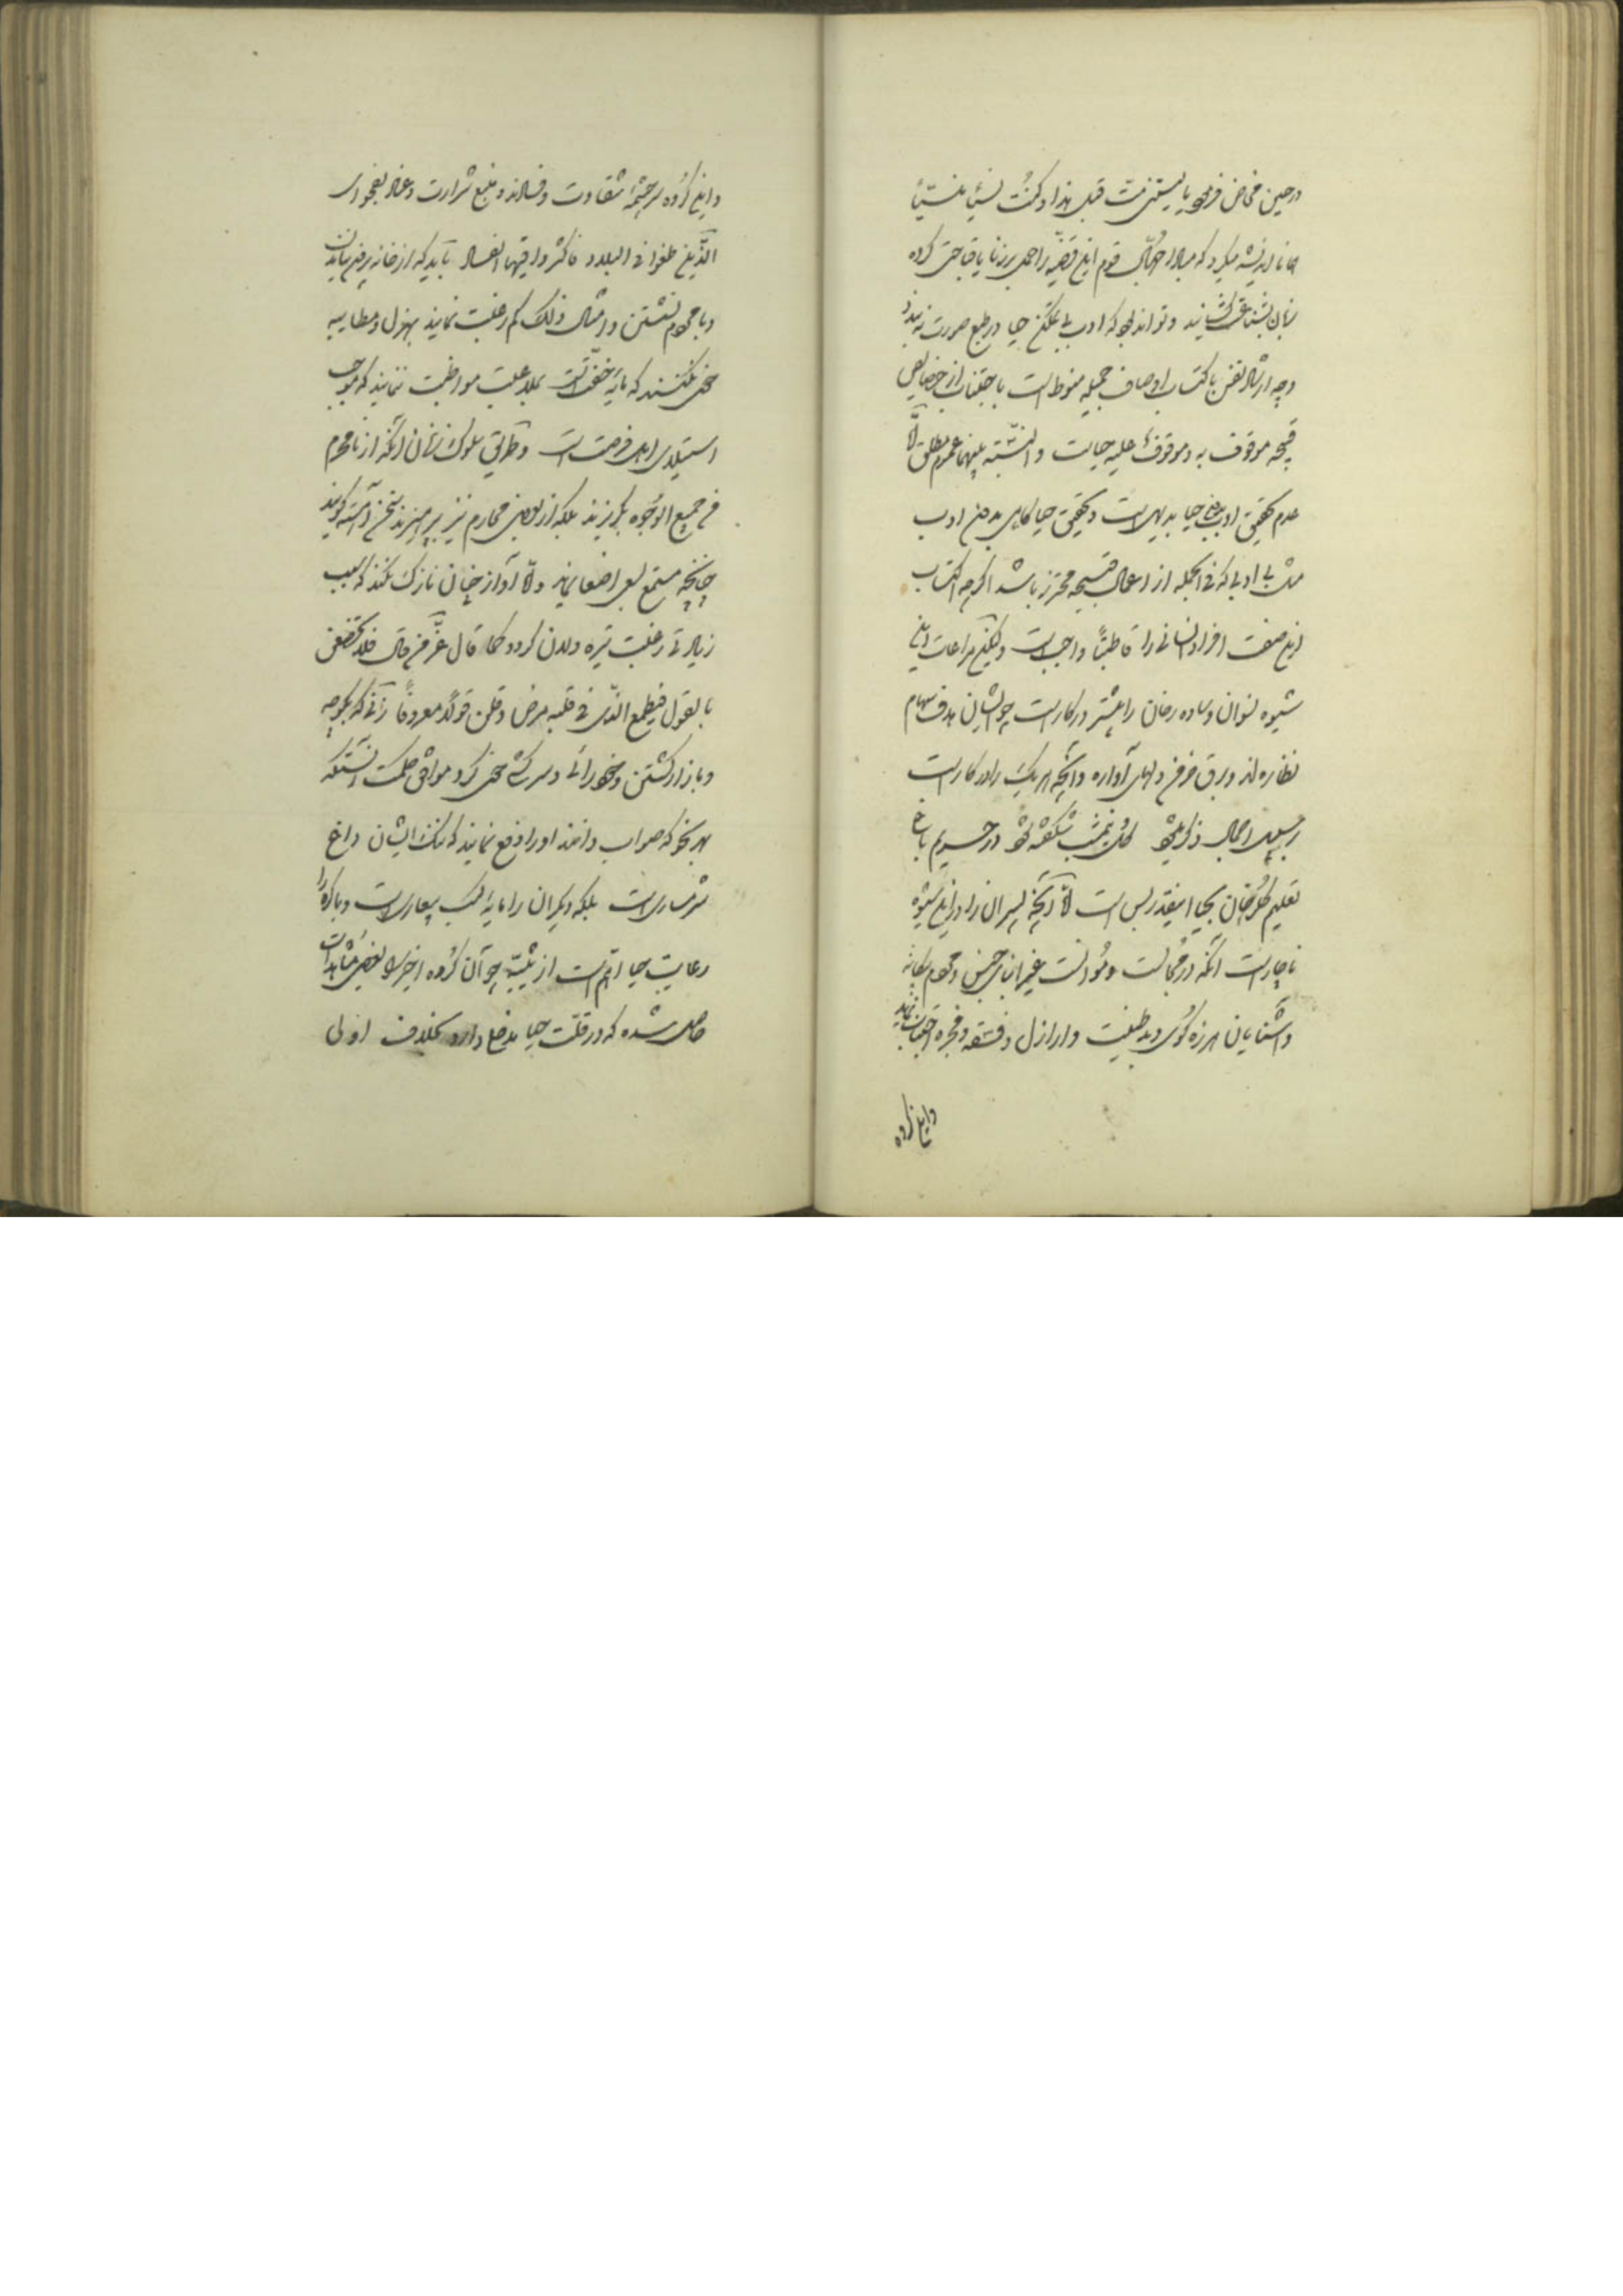 در حین مخاض فرمود یا لیتنی مت قبل هذا و کنت نسیا منسیا
همانا اندیشه میکرد که مبادا جهال قوم این قضیه را حمل بر زنا یا قباحتی کرده
زبان بشناعت گشایند و تواند بود که ادب بی تمکین حیا در طبع صورت نه بندد
و چه ارشاد نفس باکتساب اوصاف جمیله منوط است باجتناب از خصایص
قبیحه موقوف به و موقوف علیه حیاست و النسبة بینهما عموم مطلق الا
عدم تحقیق ادب بدون حیا بدیهی است و تحقیق حیا گاهی بدون ادب
مثل بی ادبی که فی الجمله از اعمال قبیحه محترز باشد اگرچه اکتساب
این صفت افراد انسانی را قاطبة واجب است ولیکن مراعات این
شیوه نسوان و ساده رخان را بیشتر در کار است چو ایشان هدف سهام
نظاره اند و برق خرمن دلهای آواره و آنچه هر یک را در کار است
بر سبیل اجمال ذکر میشود گل بنمشب شکفته شود در حریم باغ
تعلیم گلرخان بحیا اینقدر بس است الا آنچه پسران را در این شیوه
ناچار است آنکه در مجالست و مؤانست غیر ابنای جنس و محرم بیگانه
و آشنایان هرزه گوی و بد طینت و اراذل و فسقه و فجره اجتناب نمایند
و این گروه
و این گروه سرچشمه شقاوت و فسادند و منبع شرارت و عناد بفحوای
الذین طغوا فی البلاد فاکثروا فیها الفساد باید که از خانه بیرون نیایند
و با محرم نشستن و امثال ذلک کم رغبت نمایند بهزل و مطایبه
سخن نکنند که مایه خفت است بملاعبت مواظبت ننمایند که موجب
استیلای اهل فرصت است و طریق سلوک زنان آنکه از نامحرم
فی جمیع الوجوه بگریزند بلکه از بعض محارم نیز بپرهیزند سخن آهسته گویند
چنانچه مستمع اصغا نماید و الا آواز چنان نازک نکند که سبب
زیادتی رغبت تیره دلان گردد کما قال عز من قال فلا تخضعن
بالقول فیطمع الذی فی قلبه مرض و قلن قولا معروفا زنی که بکوچه
و بازار گشتن و خودرائی و سرکشی خو کرد موافق حکمت آنستکه
بهر نحو که صواب دانند او را دفع نمایند که ننگ ایشان داغ
شرمساری است بلکه دیگران را مایه کسب بیعاری است و باکره را
رعایت حیا اتم است از ثیبه چو آن گروه اخیر را بعض مشاهدات
حاصل شده که در قلت حیا مدخل دارد بخلاف اولی